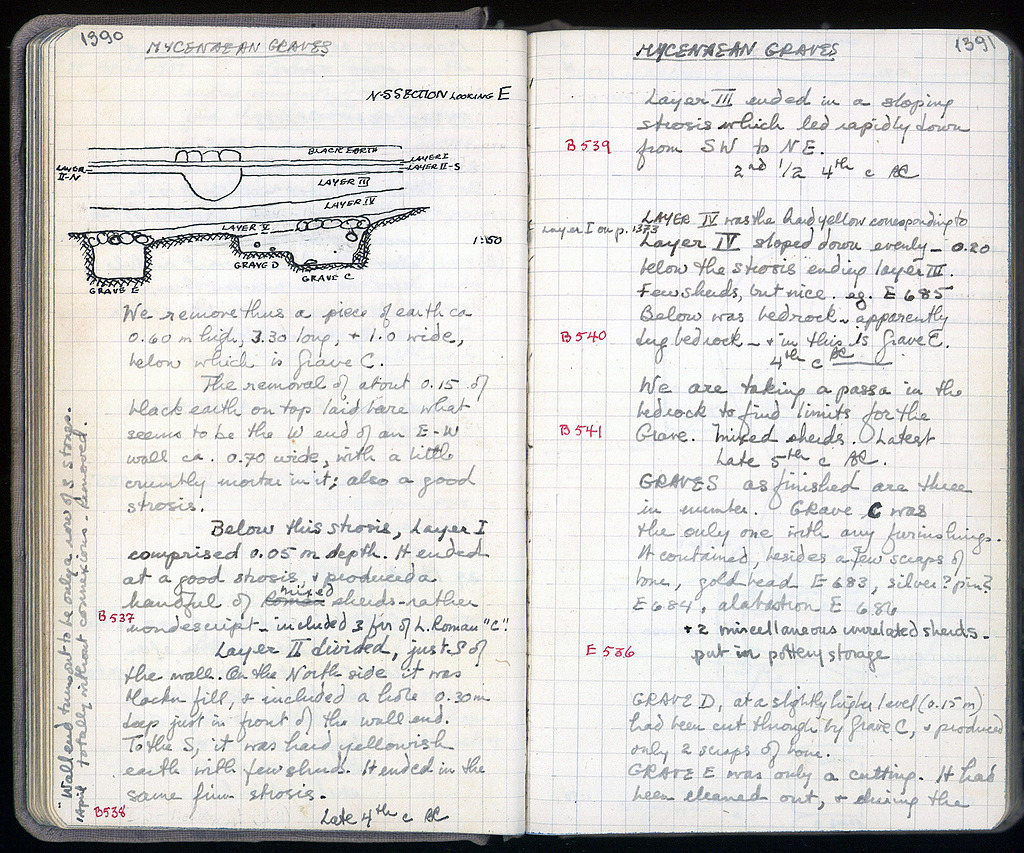 1390
MYCENAEAN GRAVES
N-S SECTION LOOKING E
BLACK EARTH
LAYER I
LAYER II-S
LAYER II-N
LAYER III
LAYER IV
LAYER V
1:50
GRAVE D
GRAVE C
GRAVE E
We remove thus a piece of earth ca
0.60 m high, 3.30 long, + 1.0 wide,
below which is Grave C.
The removal of about 0.15 of
black earth on top laid bare what
seems to be the W end of an E-W
wall ca. 0.70 wide, with a little
crumbly mortar in it; also a good
strosis.
Below this strosis, Layer I
comprised 0.05 m depth. It ended
at a good strosis, + produced a
handful of Roman mixed sherds - rather
B537
nondescript - included 3 fgr of L. Roman "C".
Layer II divided, just S of
the wall. On the North side it was
fill, + included a hole 0.30 m
deep just in front of the wall end.
To the S, it was hard yellowish
earth with few sherds. It ended in the
same firm strosis.
B538
Late 4th c BC
"Wall end turns out to be only a row of 3 stones.
1 April totally without connexions - Removed.
1391
MYCENAEAN GRAVES
Layer III ended in a sloping
strosis which led rapidly down
B539
from SW to NE.
2nd 1/2 4th c BC
LAYER IV was the hard yellow corresponding to
Layer I on p. 1373
Layer IV sloped down evenly - 0.20
below the strosis ending layer III.
Few sherds, but nice. eg. E 685
Below was bedrock - apparently
B540
dug bedrock - + in this is Grave C.
4th c BC
We are taking a passa in the
bedrock to find limits for the
B541
Grave. Mixed sherds. Latest
Late 5th c BC.
GRAVES as finished are three
in number. Grave C was
the only one with any furnishings.
It contained, besides a few scraps of
bone, gold bead E 683, silver? pin?
E 684, alabastron E 686
+ 2 miscellaneous unrelated sherds -
E 586
put in pottery storage
GRAVE D, at a slightly higher level (0.15 m)
had been cut through by Grave C, + produced
only 2 scraps of bone.
GRAVE E was only a cutting. It had
been cleaned out, + during the